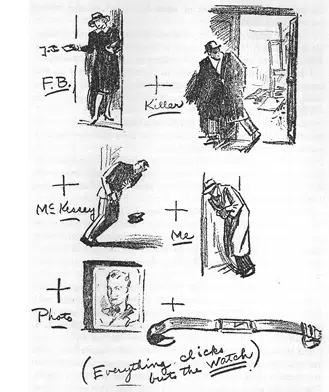 F.B.
+
Killer
+
McKissey
+
Me
+
Photo
+
(Everything clicks
but the watch)